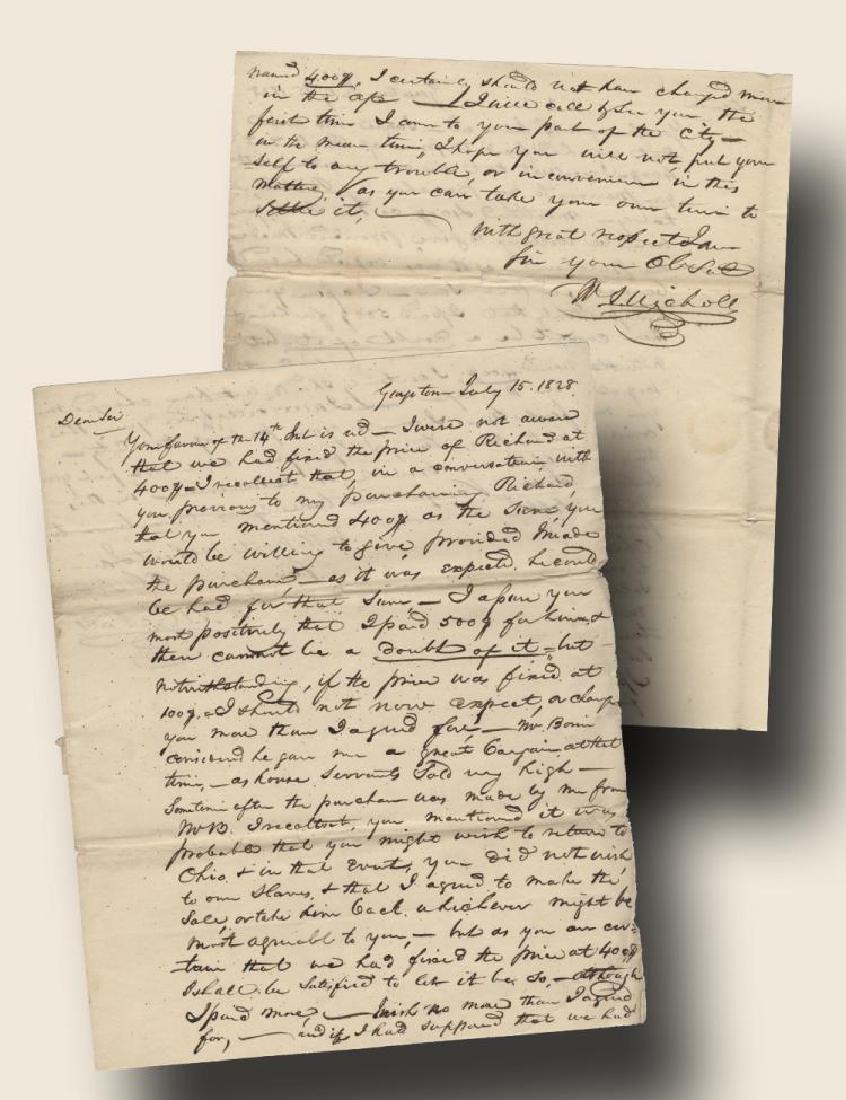 Dear Sir
July 15. 1828.
Your favour of the 14th Inst is rd — I was not aware
that we had fixed the price of Richard at
400$ — I recollect that, in a conversation with
you previous to my purchasing Richard,
that you mentioned 400$ as the sum, you
would be willing to give, provided I made
the purchase, — as it was expected, he could
be had for that sum — I assure you
most positively that I paid 500$ for him &
there cannot be a doubt of it — but
notwithstanding, if the price was fixed at
400$. — I should not now expect, or charge
you more than I agreed for, — Mr
considered he gave me a great bargain, at that
time, — as house servants sold very high —
Sometime after the purchase was made by me from
Mr B. I recollect, you mentioned it was
probable that you might wish to return to
Ohio & in that event, you did not wish
to own slaves, & that I agreed to make the
sale, or take him back, whichever might be
most agreeable to you, — but as you are cer-
tain that we had fixed the price at 400$
I shall be satisfied to let it be so, — although
I paid more, — I wish no more than I agreed
for, — and if I had supposed that we had
named 400$, I certainly should not have charged more
in the — I will call & see you, the
first time I come to your part of the City —
in the mean time, I hope you will not put your
self to any trouble, or inconvenience in this
matter, as you can take your own time to
settle it, —
With great respect I am
Sir your Ob Set
W. S. Nicholls